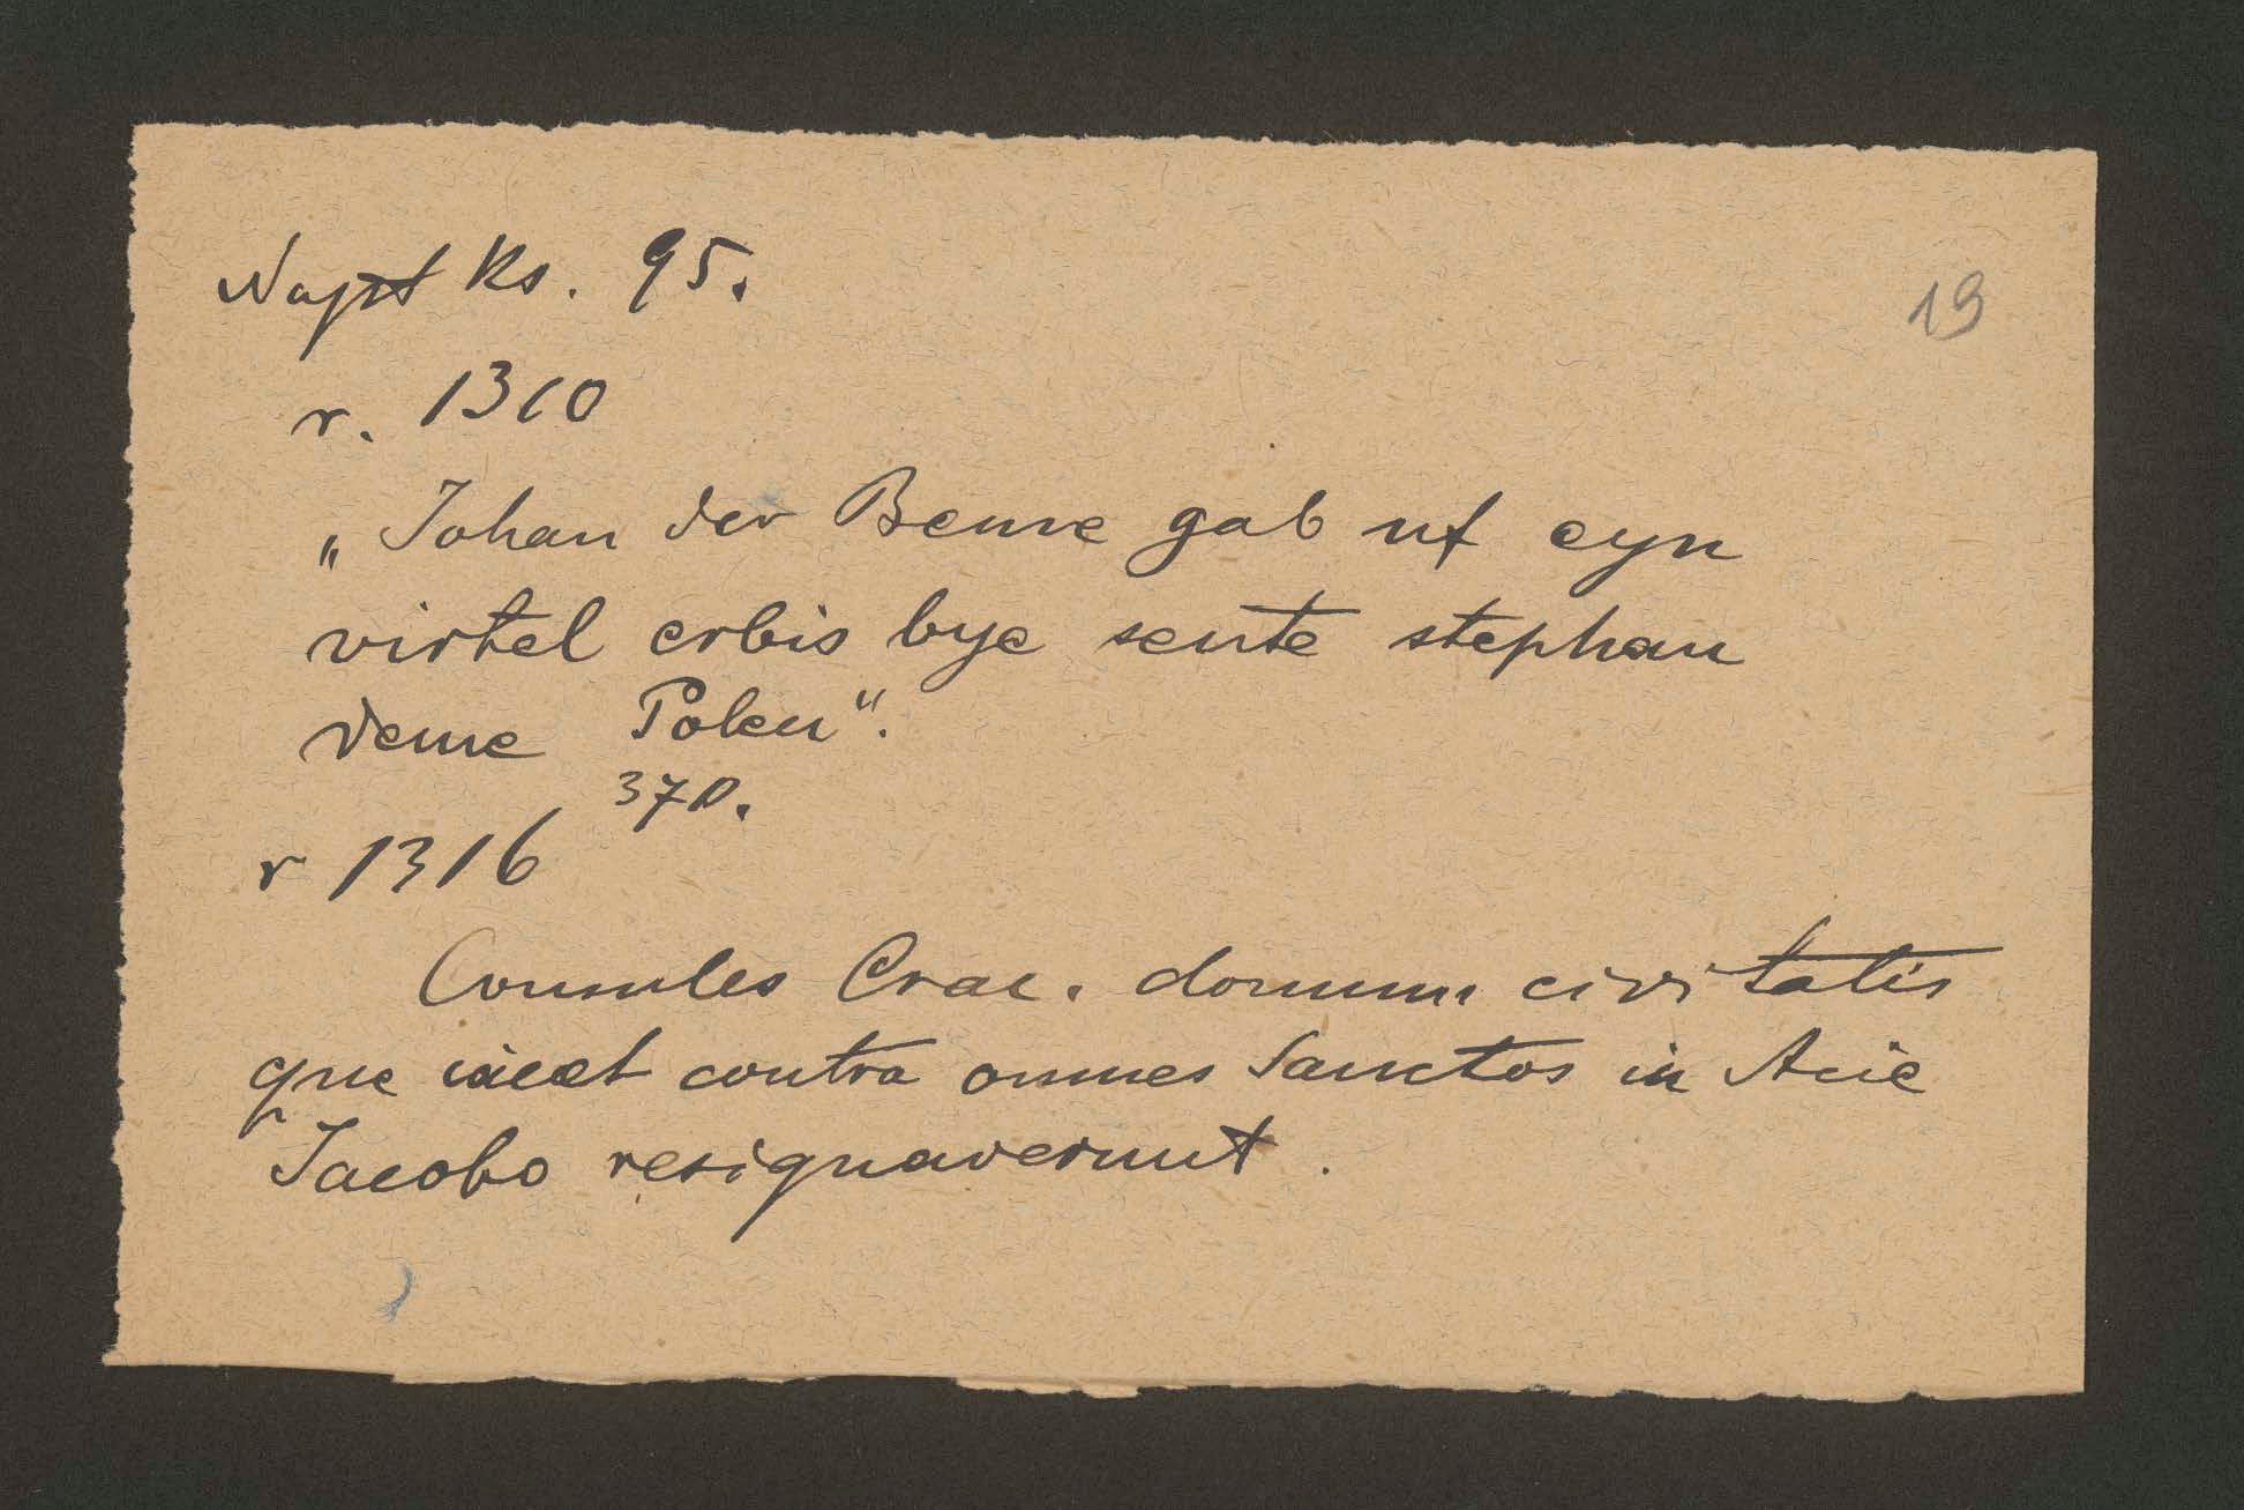 Najst Ks. 95.
19
r. 1310
„Johan der Beme gab uf eyn
virtel erbis bye sente stephan
deme Polen".
370.
r 1316
Consules Crac. domum civitatis
que iacet contra omnes Sanctos in Acie
Jacobo resignaverunt.